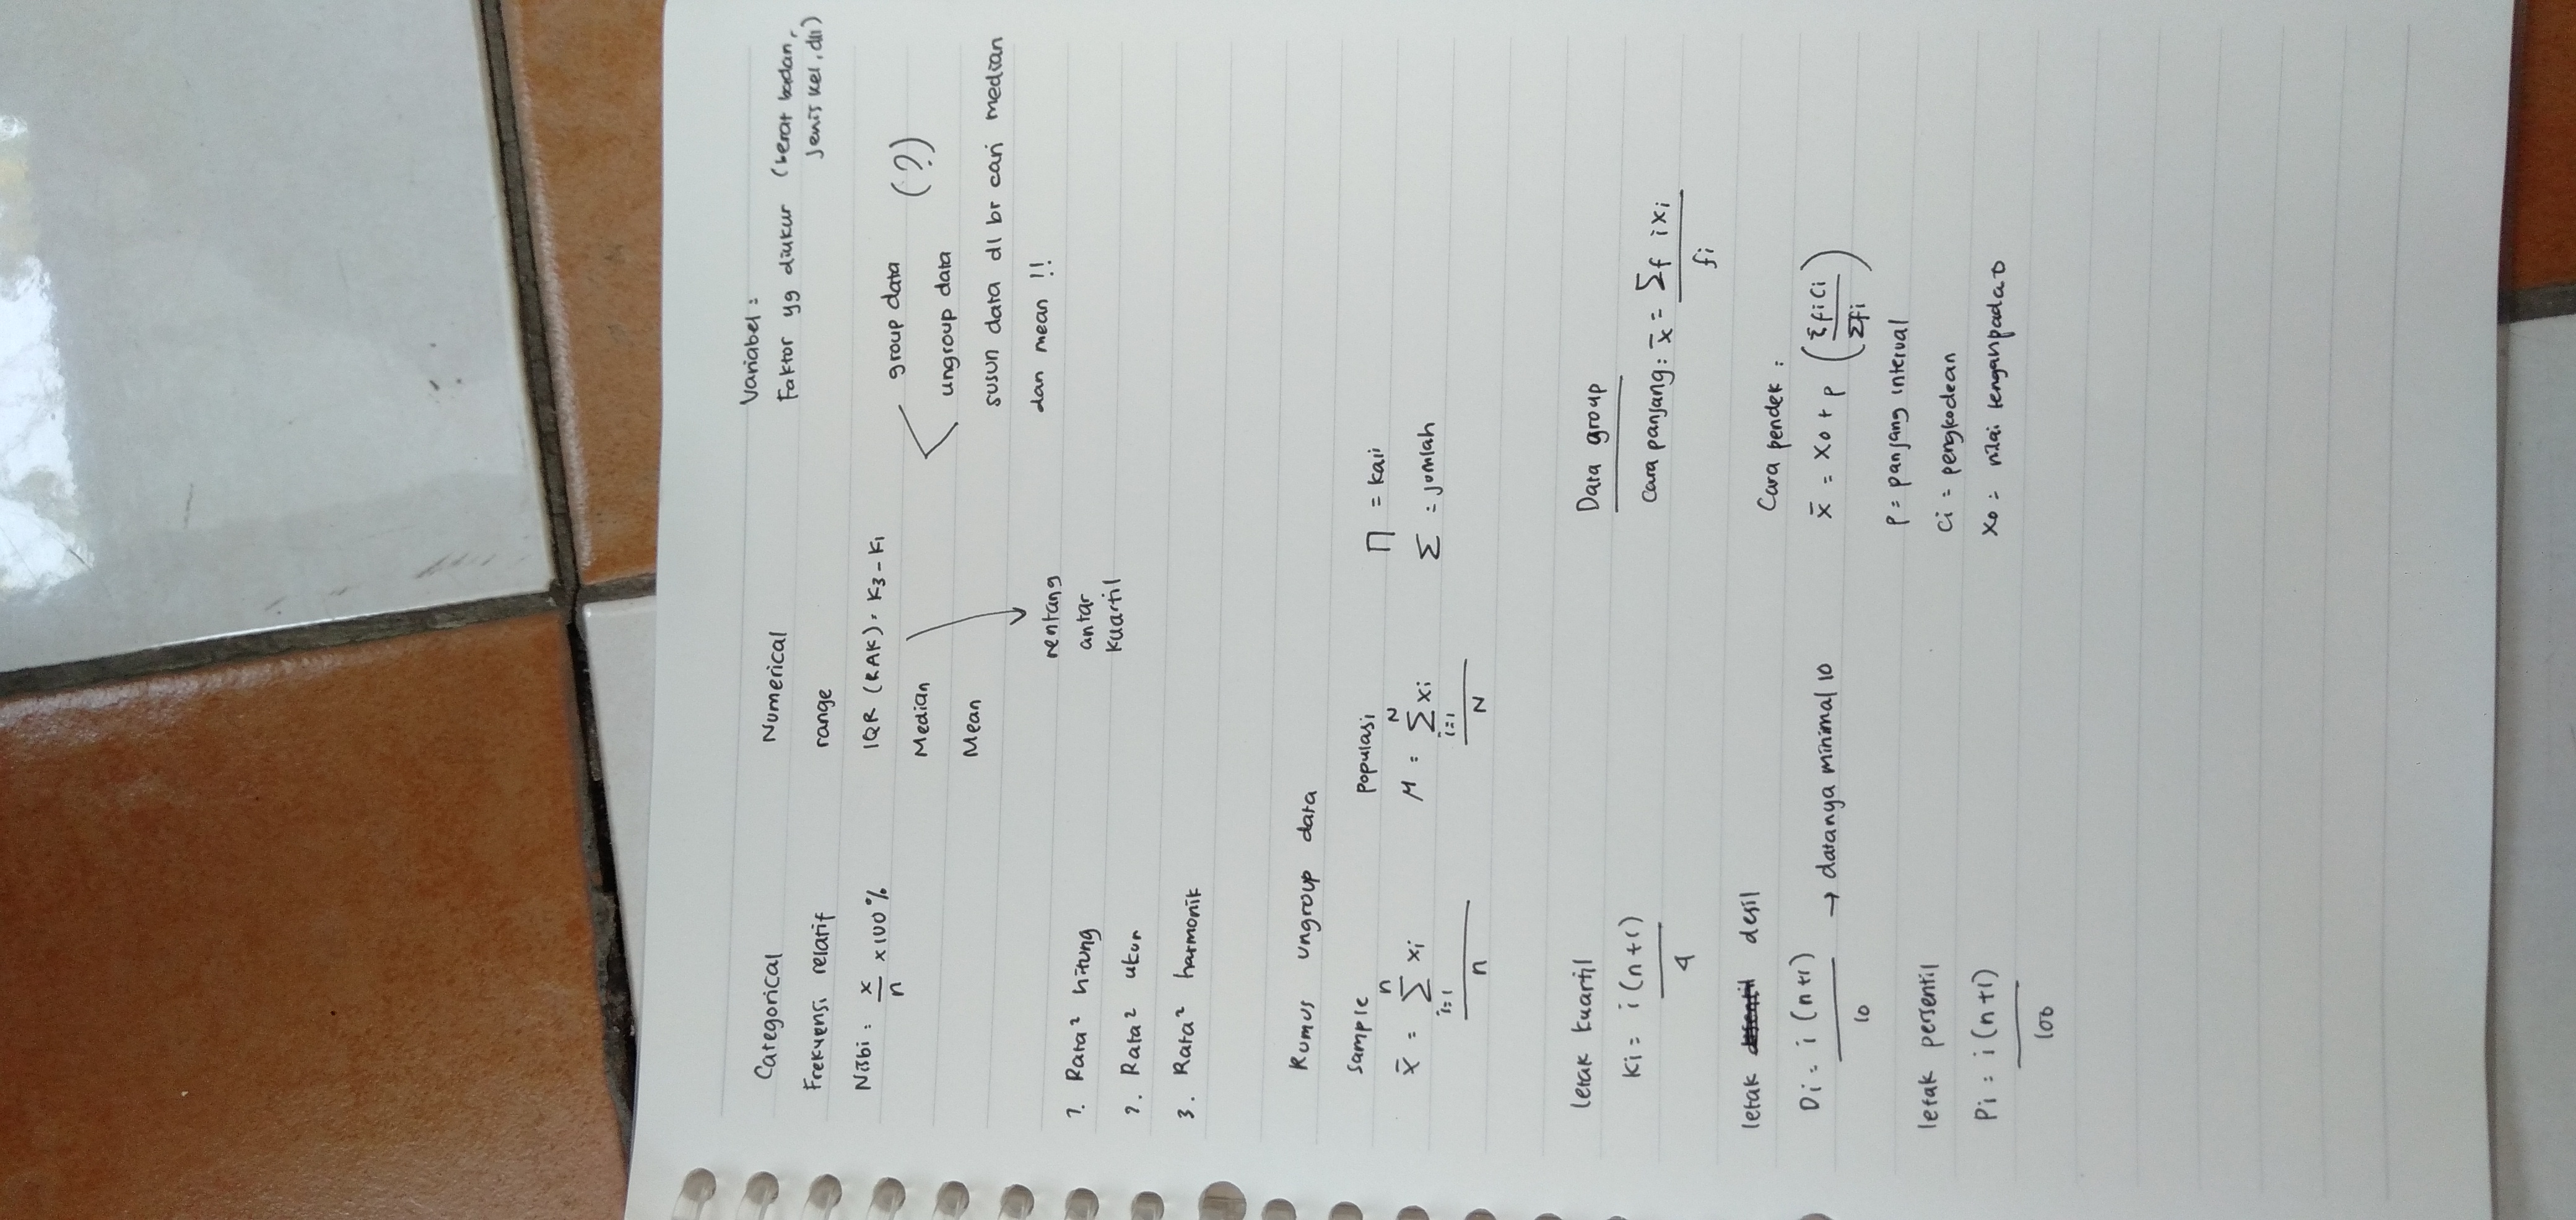 Categorical
Frekuensi relatif
Nisbi : x/n × 100%
Numerical
range
IQR (RAK) = K3 - K1
Median
Mean
rentang
antar
kuartil
Variabel :
Faktor yg diukur (berat badan,
jenis kel, dll)
group data
ungroup data
(?)
susun data dl br cari median
dan mean !!
1. Rata² hitung
2. Rata² ukur
3. Rata² harmonik
Rumus ungroup data
sample
x̄ = n Σ i=1 xi / n
populasi
μ = N Σ i=1 xi / N
Π = kali
Σ = jumlah
letak kuartil
Ki = i(n+1) / 4
letak desil
Di = i(n+1) / 10 → datanya minimal 10
letak persentil
Pi = i(n+1) / 100
Data group
Cara panjang : x̄ = Σf ixi / fi
Cara pendek :
x̄ = x0 + p (Σfici / Σfi)
p = panjang interval
ci = pengkodean
x0 = nilai tengah pada 0